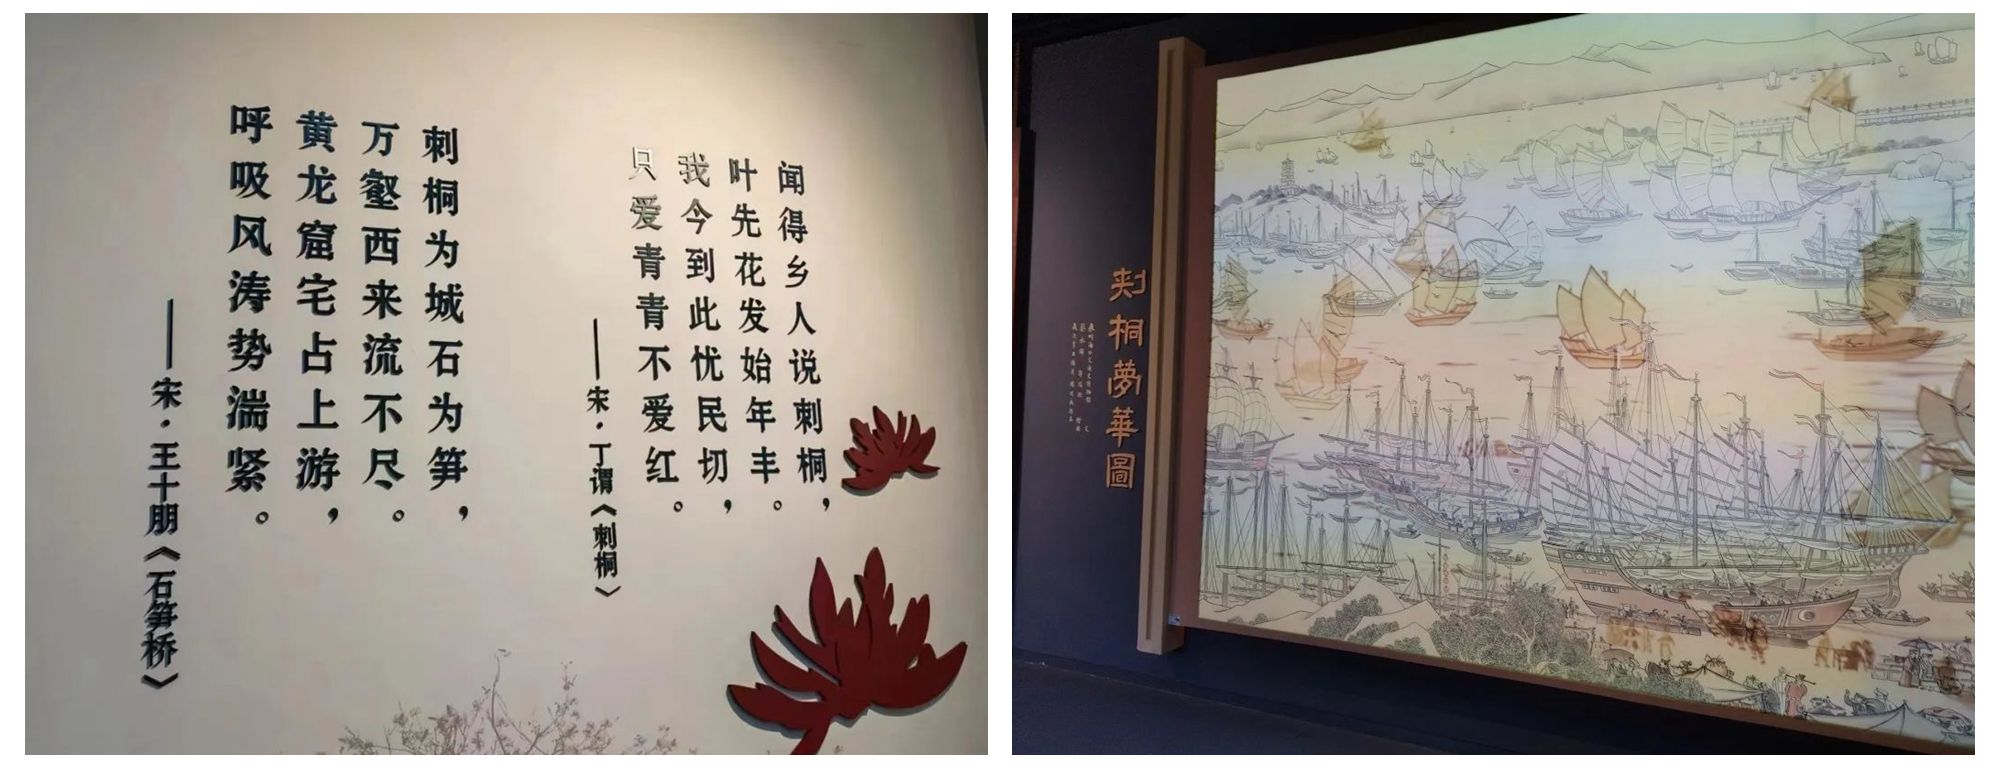 闻得乡人说刺桐，
叶先花发始年丰。
我今到此忧民切，
只爱青青不爱红。
——宋·丁谓《刺桐》
刺桐为城石为笋，
万壑西来流不尽。
黄龙窟宅占上游，
呼吸风涛势湍紧。
——宋·王十朋《石笋桥》
刺桐夢華圖